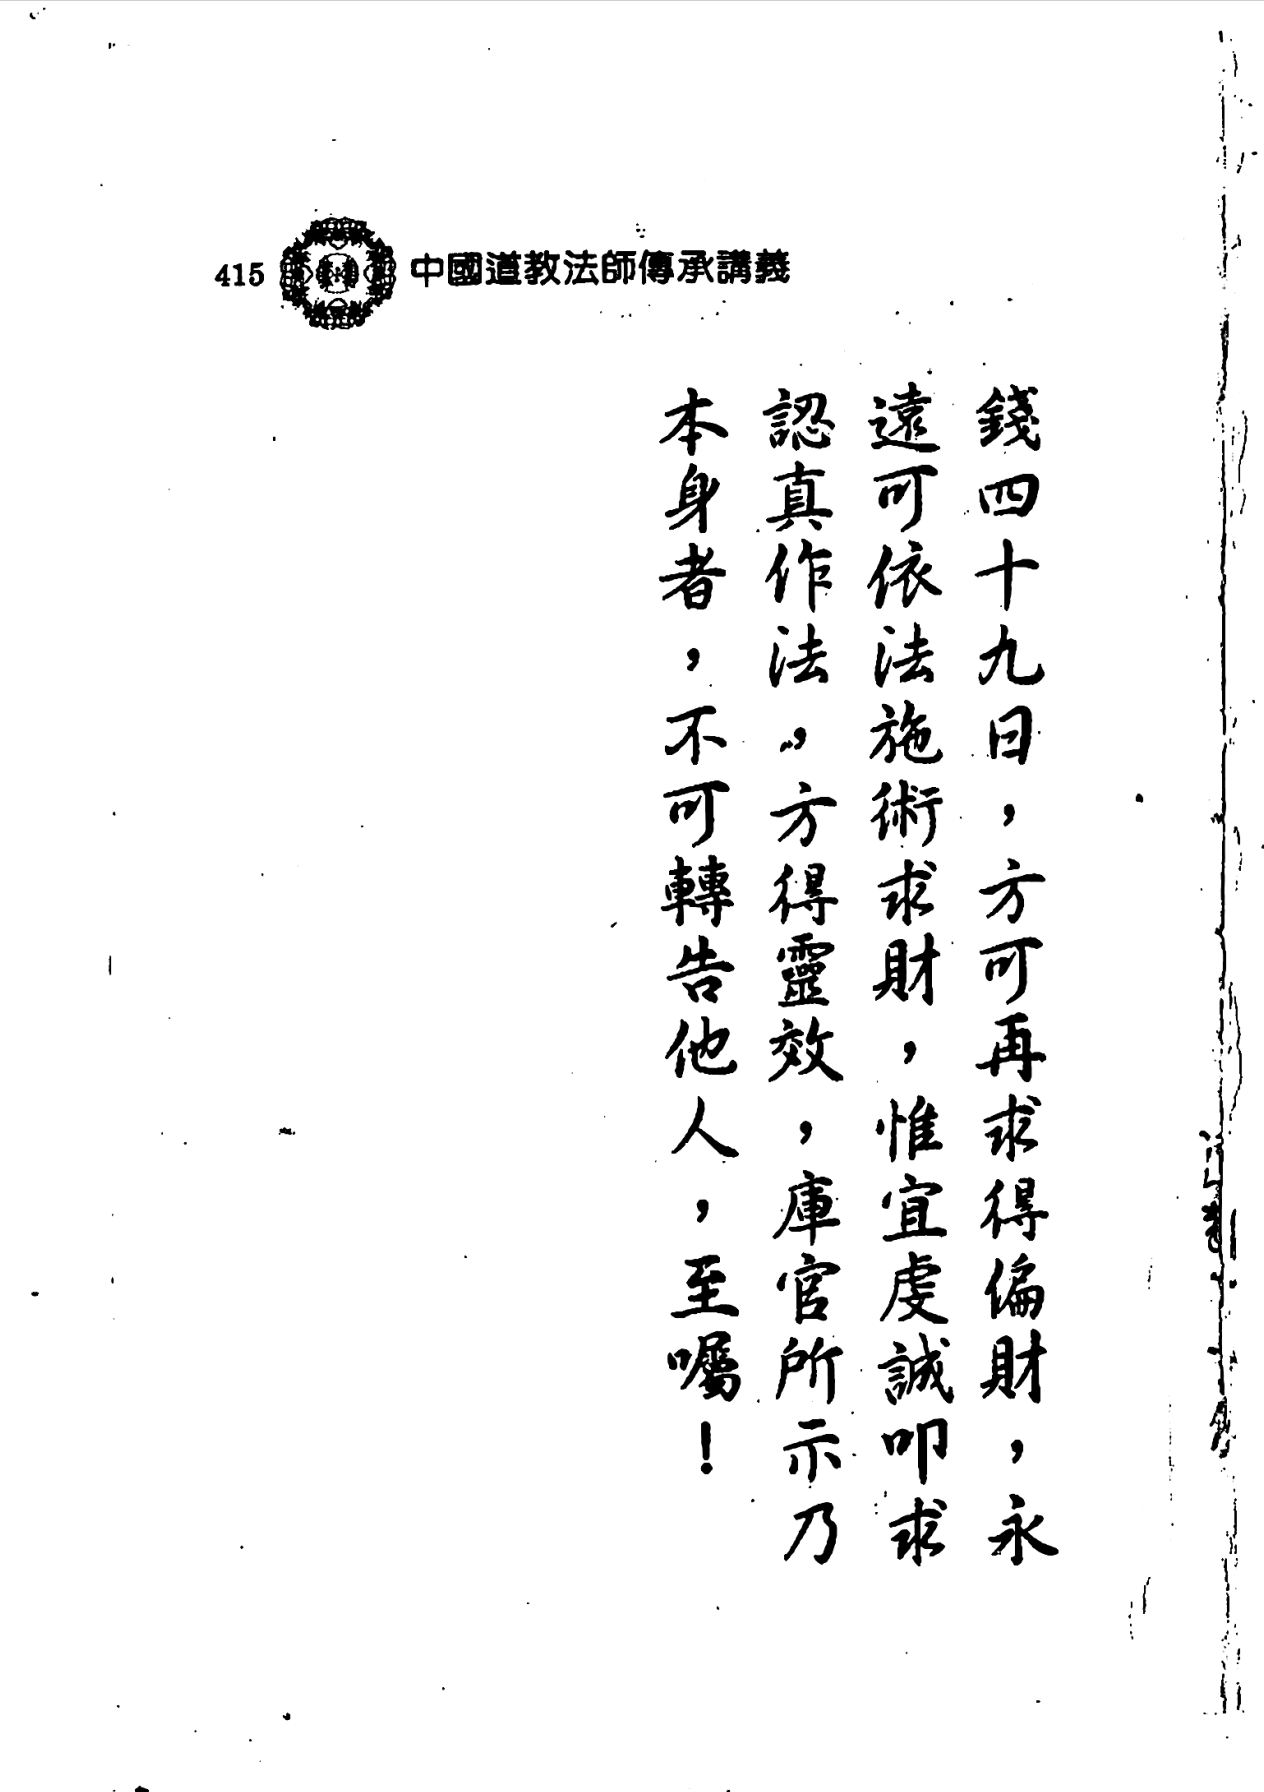 415 中國道教法師傳承講義
錢四十九日，方可再求得偏財，永
遠可依法施術求財，惟宜虔誠叩求
認真作法，方得靈效，庫官所示乃
本身者，不可轉告他人，至囑！